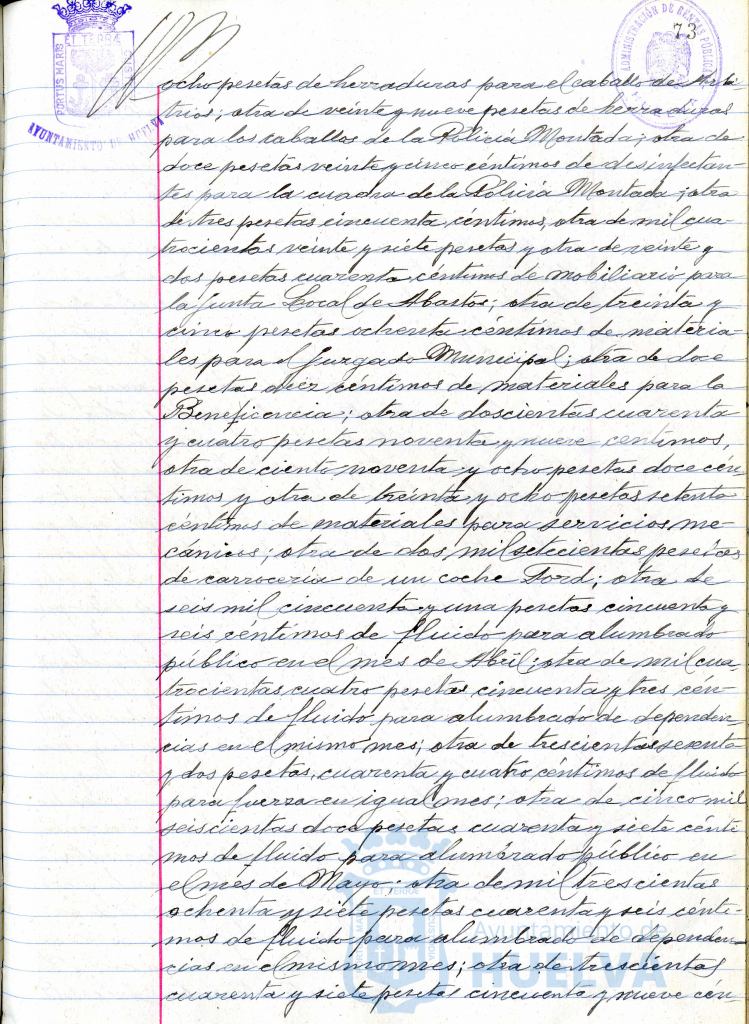 73
PORTUS MARIS
ET TERRÆ
CUSTODIA
AYUNTAMIENTO DE HUELVA
ADMINISTRACIÓN DE RENTAS PÚBLICAS
ocho pesetas de herraduras para el caballo de Arbi
trios; otra de veinte y nueve pesetas de herraduras
para los caballos de la Policía Montada; otra de
doce pesetas veinte y cinco céntimos de desinfectan-
tes para la cuadra de la Policía Montada; otra
de tres pesetas cincuenta céntimos, otra de mil cua-
trocientas veinte y siete pesetas y otra de veinte y
dos pesetas cuarenta céntimos de mobiliario para
la Junta Local de Abastos; otra de treinta y
cinco pesetas ochenta céntimos de materia-
les para el Juzgado Municipal; otra de doce
pesetas diez céntimos de materiales para la
Beneficencia; otra de doscientas cuarenta
y cuatro pesetas noventa y nueve centimos,
otra de ciento noventa y ocho pesetas doce cén-
timos y otra de treinta y ocho pesetas setenta
céntimos de materiales para servicios me-
cánicos; otra de dos mil setecientas pesetas
de carrocería de un coche Ford; otra de
seis mil cincuenta y una pesetas cincuenta y
seis céntimos de fluido para alumbrado
público en el mes de Abril; otra de mil cua-
trocientas cuatro pesetas cincuenta y tres cén-
timos de fluido para alumbrado de dependen-
cias en el mismo mes; otra de trescientas sesenta
y dos pesetas, cuarenta y cuatro céntimos de fluido
para fuerza en igual mes; otra de cinco mil
seiscientas doce pesetas cuarenta y siete cénti-
mos de fluido para alumbrado público en
el mes de Mayo; otra de mil trescientas
ochenta y siete pesetas cuarenta y seis cénti-
mos de fluido para alumbrado de dependen-
cias en el mismo mes; otra de trescientas
cuarenta y siete pesetas cincuenta y nueve cén-
Ayuntamiento de
HUELVA